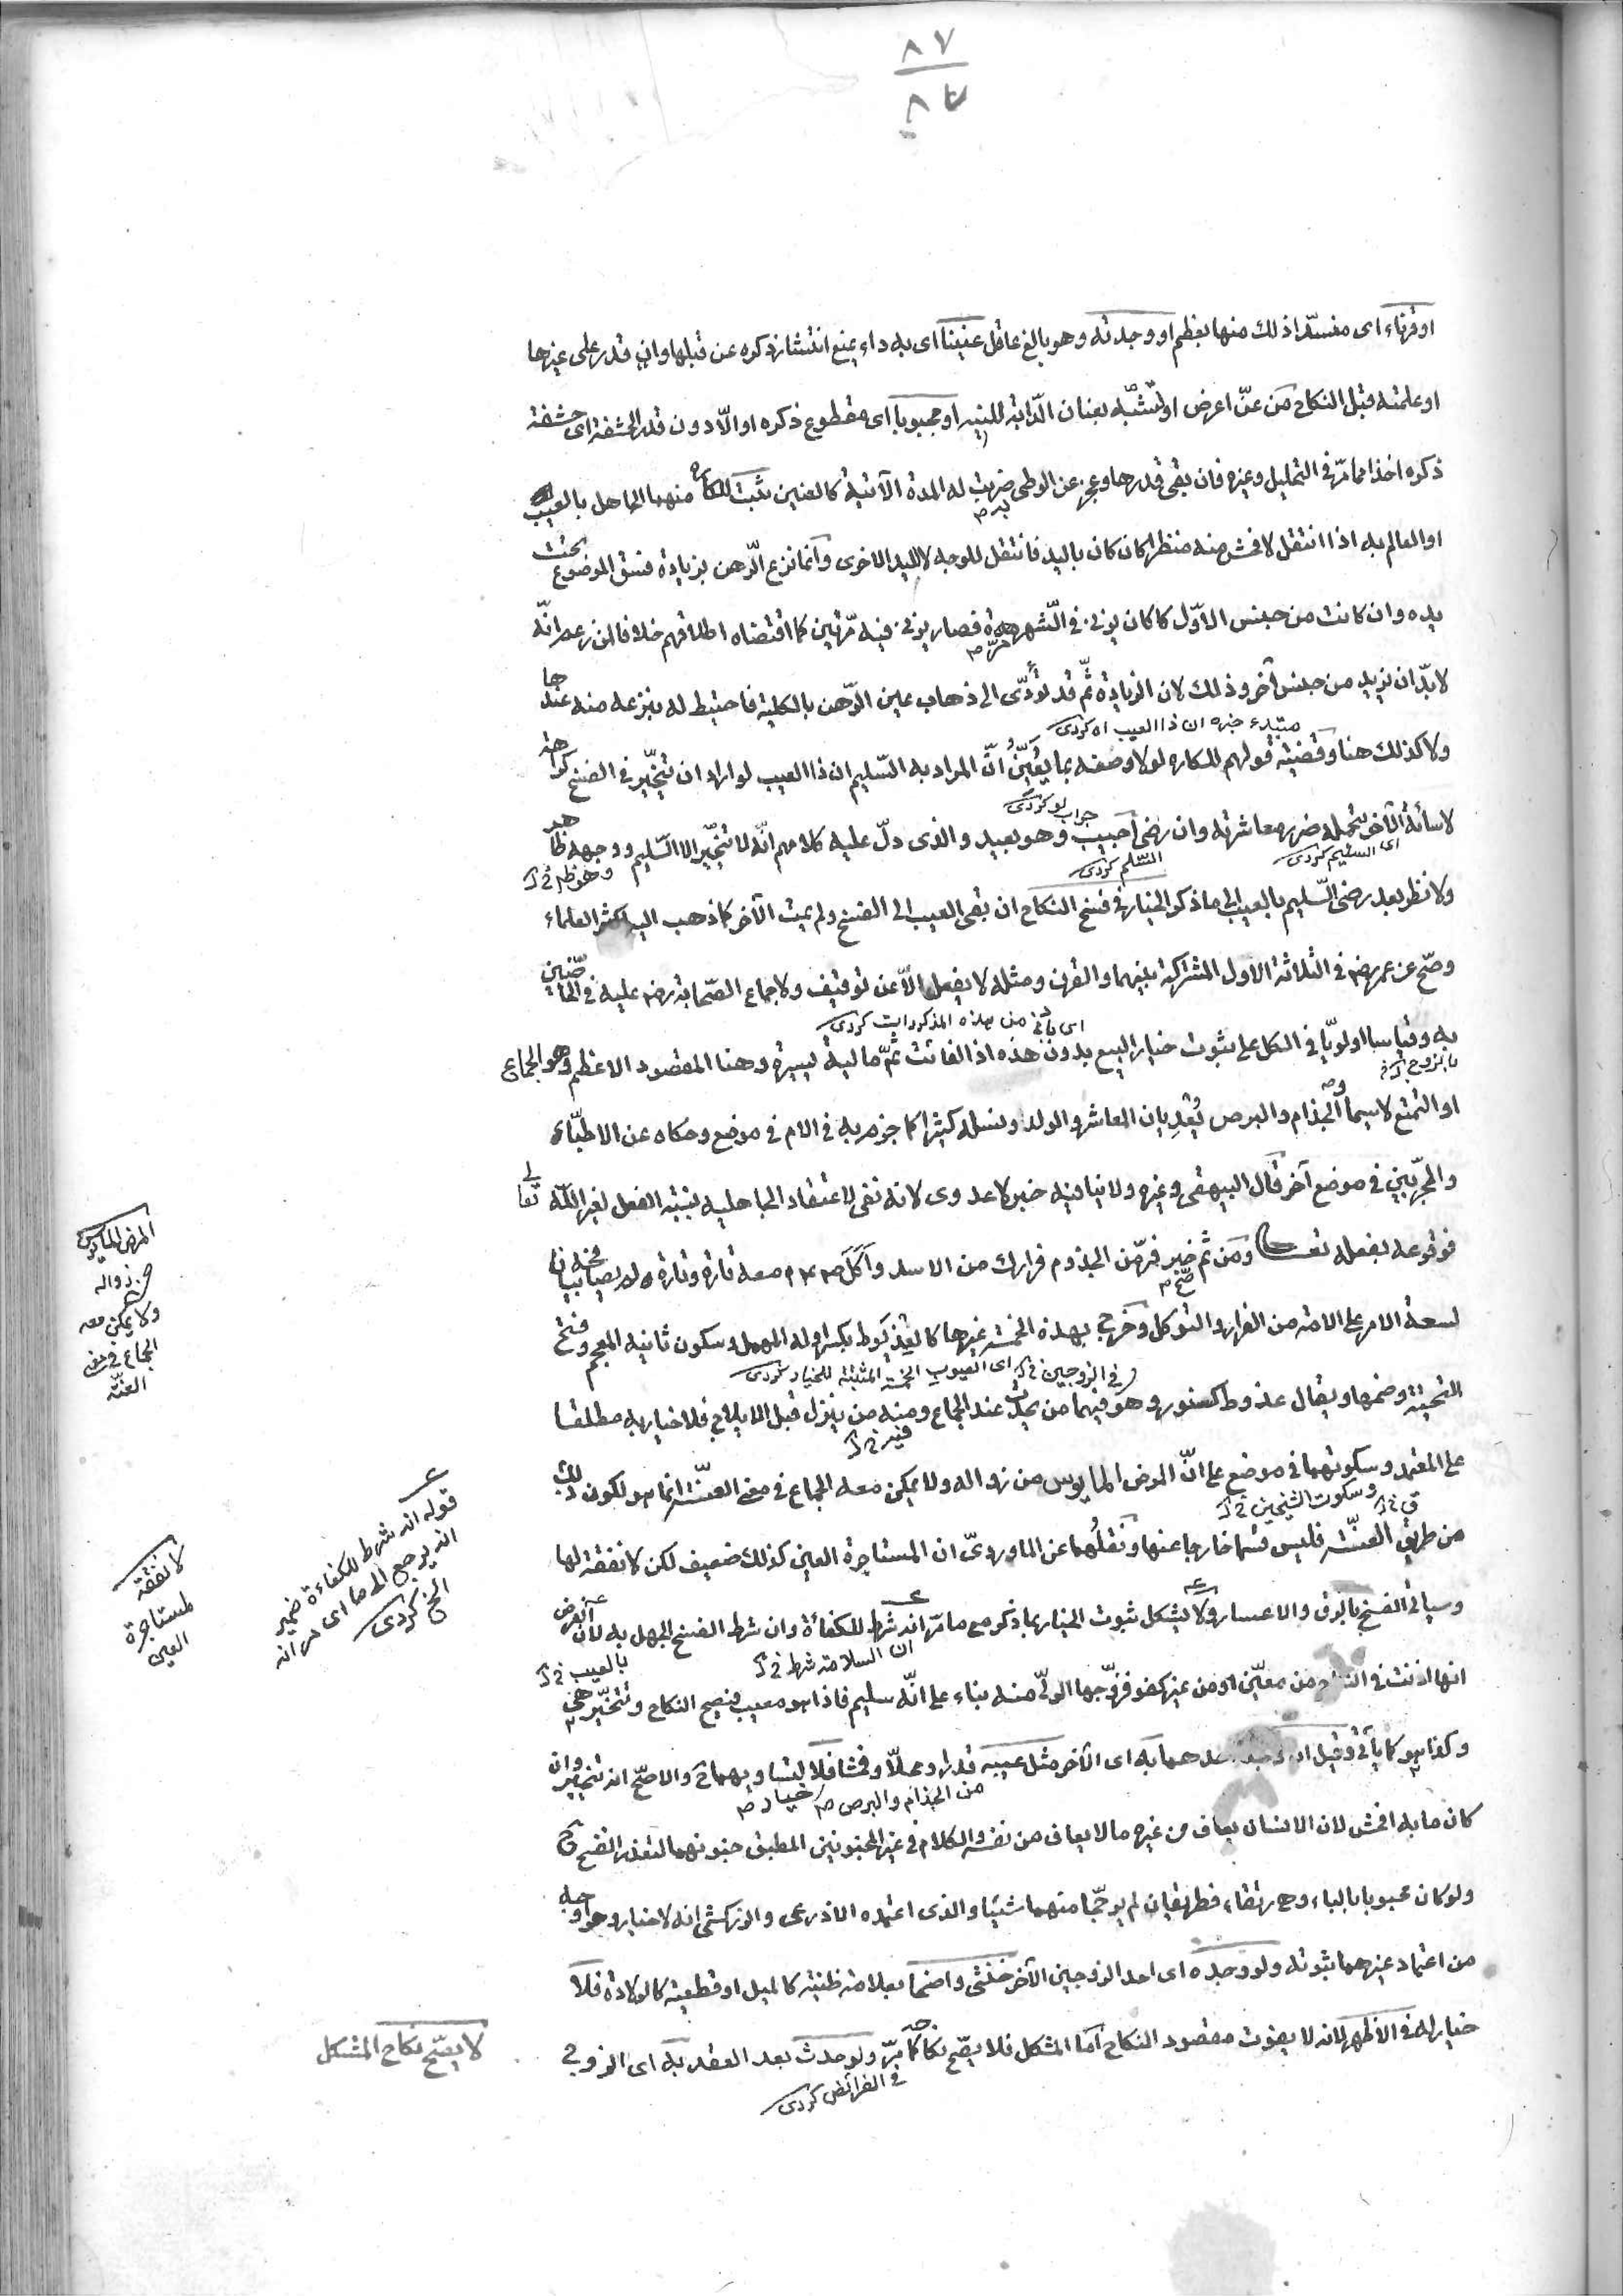 ٨٧
٨٧
او قرناء اى منسدّا ذلك منها بعظم او وجدته وهو بالغ عاقل عنينا اى به داء يمنع انتشار ذكره عن قبلها وان قدر على غيرها
او علمته قبل النكاح من عنّ اعرض او لتشبّه بعنان الدّابة للينه او مجبوبا اى مقطوع ذكره او الّا دون قدر الحشفة اى حشفة
ذكره اخذا مما مرّ فى التحليل وغيره فان بقى قدرها وعجز عن الوطى به ضربت له المدة الآتية كالعنين ثبت للكاره منهما الجاهل بالعيب
او العالم به اذا انتقل لافحش منه منظرا كان كان باليد فانتقل للوجه لا لليد الاخرى وانما نزع الرّهن بزيادة فسق الموضوع تحت
يده وان كانت من جنس الاوّل كا كان يزنى فى الشهر مرّة فصار يزنى فيه مرّتين كما اقتضاه اطلاقهم خلافا لمن زعم انّه
لا بدّ ان يزيد من جنس آخر وذلك لان الزيادة ثمّ قد تؤدّى الى ذهاب عين الرّهن بالكلية فاحتيط له بنزعه منه عندها
مبتدء خبره ان ذا العيب اه كردى
ولا كذلك هنا وقضيّة قولهم للكاره لولا وصفه بما يعيّن انّ المراد به السّليم ان ذا العيب لو اراد ان يتخيّر فى الفسخ كراهة
جواب لو كردى
لاسائة الآخر بتحمله ضرر معاشرته وان رضى اجيب وهو بعيد والذى دلّ عليه كلامهم انّه لا يتخيّر الا السّليم ووجهه ظاهر
اى السليم كردى
السّليم كردى
ولا نظر بعد رضى السّليم بالعيب الى ما ذكر الخيار فى فسخ النكاح ان بقى العيب الى الفسخ ولم يمت الآخر كما ذهب اليه اكثر العلماء
وصحّ عن عمر رضه فى الثلاثة الاول المشتركة بينهما والقرن ومثله لا يفعل الّا عن توقيف ولاجماع الصّحابة رضه عليه فى
اى باثنى من هذه المذكورات كردى
به وقياسا اولويّا فى الكل على ثبوت خيار البيع بدون هذه اذ الفائت ثمّ مالية يسيرة وهنا المقصود الاعظم وهو الجماع
او التمتع لا سيما والجذام والبرص يُعْدِيان المعاشر والولد ونسله كثيرا كما جزم به فى الام فى موضع وحكاه عن الاطبّاء
والمجرّبين فى موضع آخر قال البيهقى وغيره ولا ينافيه خبر لا عدوى لانه نفى لاعتقاد الجاهلية بنسبة الفعل لغير اللّه تعالى
فوقوعه بفعله تعالى ومن ثم صحّ خبر فرّ من المجذوم فرارك من الاسد واكل معه تارة وتارة لم يصافحه بيانا
لسعة الامر على الامة من الفرار والتوكل وخرج بهذه الخمسة غيرها كالعذيوط بكسر اوله المهمل وسكون ثانيه المعجم وفتح
فى الزوجين اى العيوب الخمسة المثبتة للخيار كردى
التحتية وضمها ويقال عذوط كسنور وهو فيهما من يحدث عند الجماع ومنه من ينزل قبل الايلاج فلا خيار به مطلقا
على المعتمد وسكوتهما فى موضع على انّ المرض المايوس من زواله ولا يمكن معه الجماع فى معنى العنّة انما هو لكون ذلك
وسكوت الشيخين
من طريق العنّة فليس قسما خارجا عنها ونقلهما عن الماوردىّ ان المستاجرة العين كذلك ضعيف لكن لا نفقة لها
وسياتى الفسخ بالرق والاعسار ولا يشكل ثبوت الخيار بما ذكر مع ما مرّ انه شرط للكفاءة وان شرط الفسخ الجهل به لان الفرض
ان السلامة شرط
بالعيب
انها اذنت فى النكاح من معيّن او من غير كفو فزوّجها الولىّ منه بناء على انّه سليم فاذا هو معيب فيصح النكاح وتتخيّر هى
وكذا هو كما ياتى وقيل ان وجد احدهما به اى الآخر مثل عيبه قدرا ومحلّا وفحشا فلا لتساويهما ح والاصحّ انه يتخيّر وان
من الجذام والبرص
خيار
كان ما به افحش لان الانسان يعاف من غيره ما لا يعاف من نفسه والكلام فى غير المجنونين المطبق جنونهما لتعذر الفسخ ح
ولو كان مجبوبا بالباء وهى رتقاء فطريقان لم يرجّحا منهما شيئا والذى اعتمده الاذرعى والزركشى انه لا خيار وهو اوجه
من اعتماد غيرهما ثبوته ولو وجده اى احد الزوجين الآخر خنثى واضحا بعلامة ظنية كالميل او قطعية كالولادة فلا
خيار له فى الاظهر لانه لا يفوت مقصود النكاح امّا المشكل فلا يصّح نكاحه كما مرّ ولو حدث بعد العقد به اى الزوج
فى الفرائض كردى
المرض المايوس
من زواله
ولا يمكن معه
الجماع فى معنى
العنّة
قوله انه شرط للكفاءة ضمير
انه يرجع الى ما اى مر انه
الخ كردى
لا نفقة
لمستاجرة
العين
لا يصّح نكاح المشكل